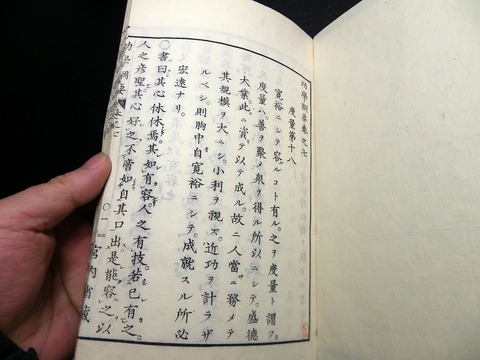 幼學綱要卷之七
度量第十八
寬裕ニシテ容ルコト有ル。之ヲ度量ト謂フ。
度量ハ善ヲ聚メ衆ヲ得ル所以ニシテ。盛德
大業此ニ資テ以テ成ル。故ニ人當ニ務メテ
其規模ヲ大ニシ。小利ヲ視ズ。近功ヲ計ラザ
ルベシ。則胸中自寬裕ニシテ。成就スル所必
宏遠ナリ。
〇書曰其心休休焉其如有容。人之有技若己有之。
人之彥聖其心好之不啻如自其口出是能容之以
幼學綱要
卷之七
〇一
宮內省藏